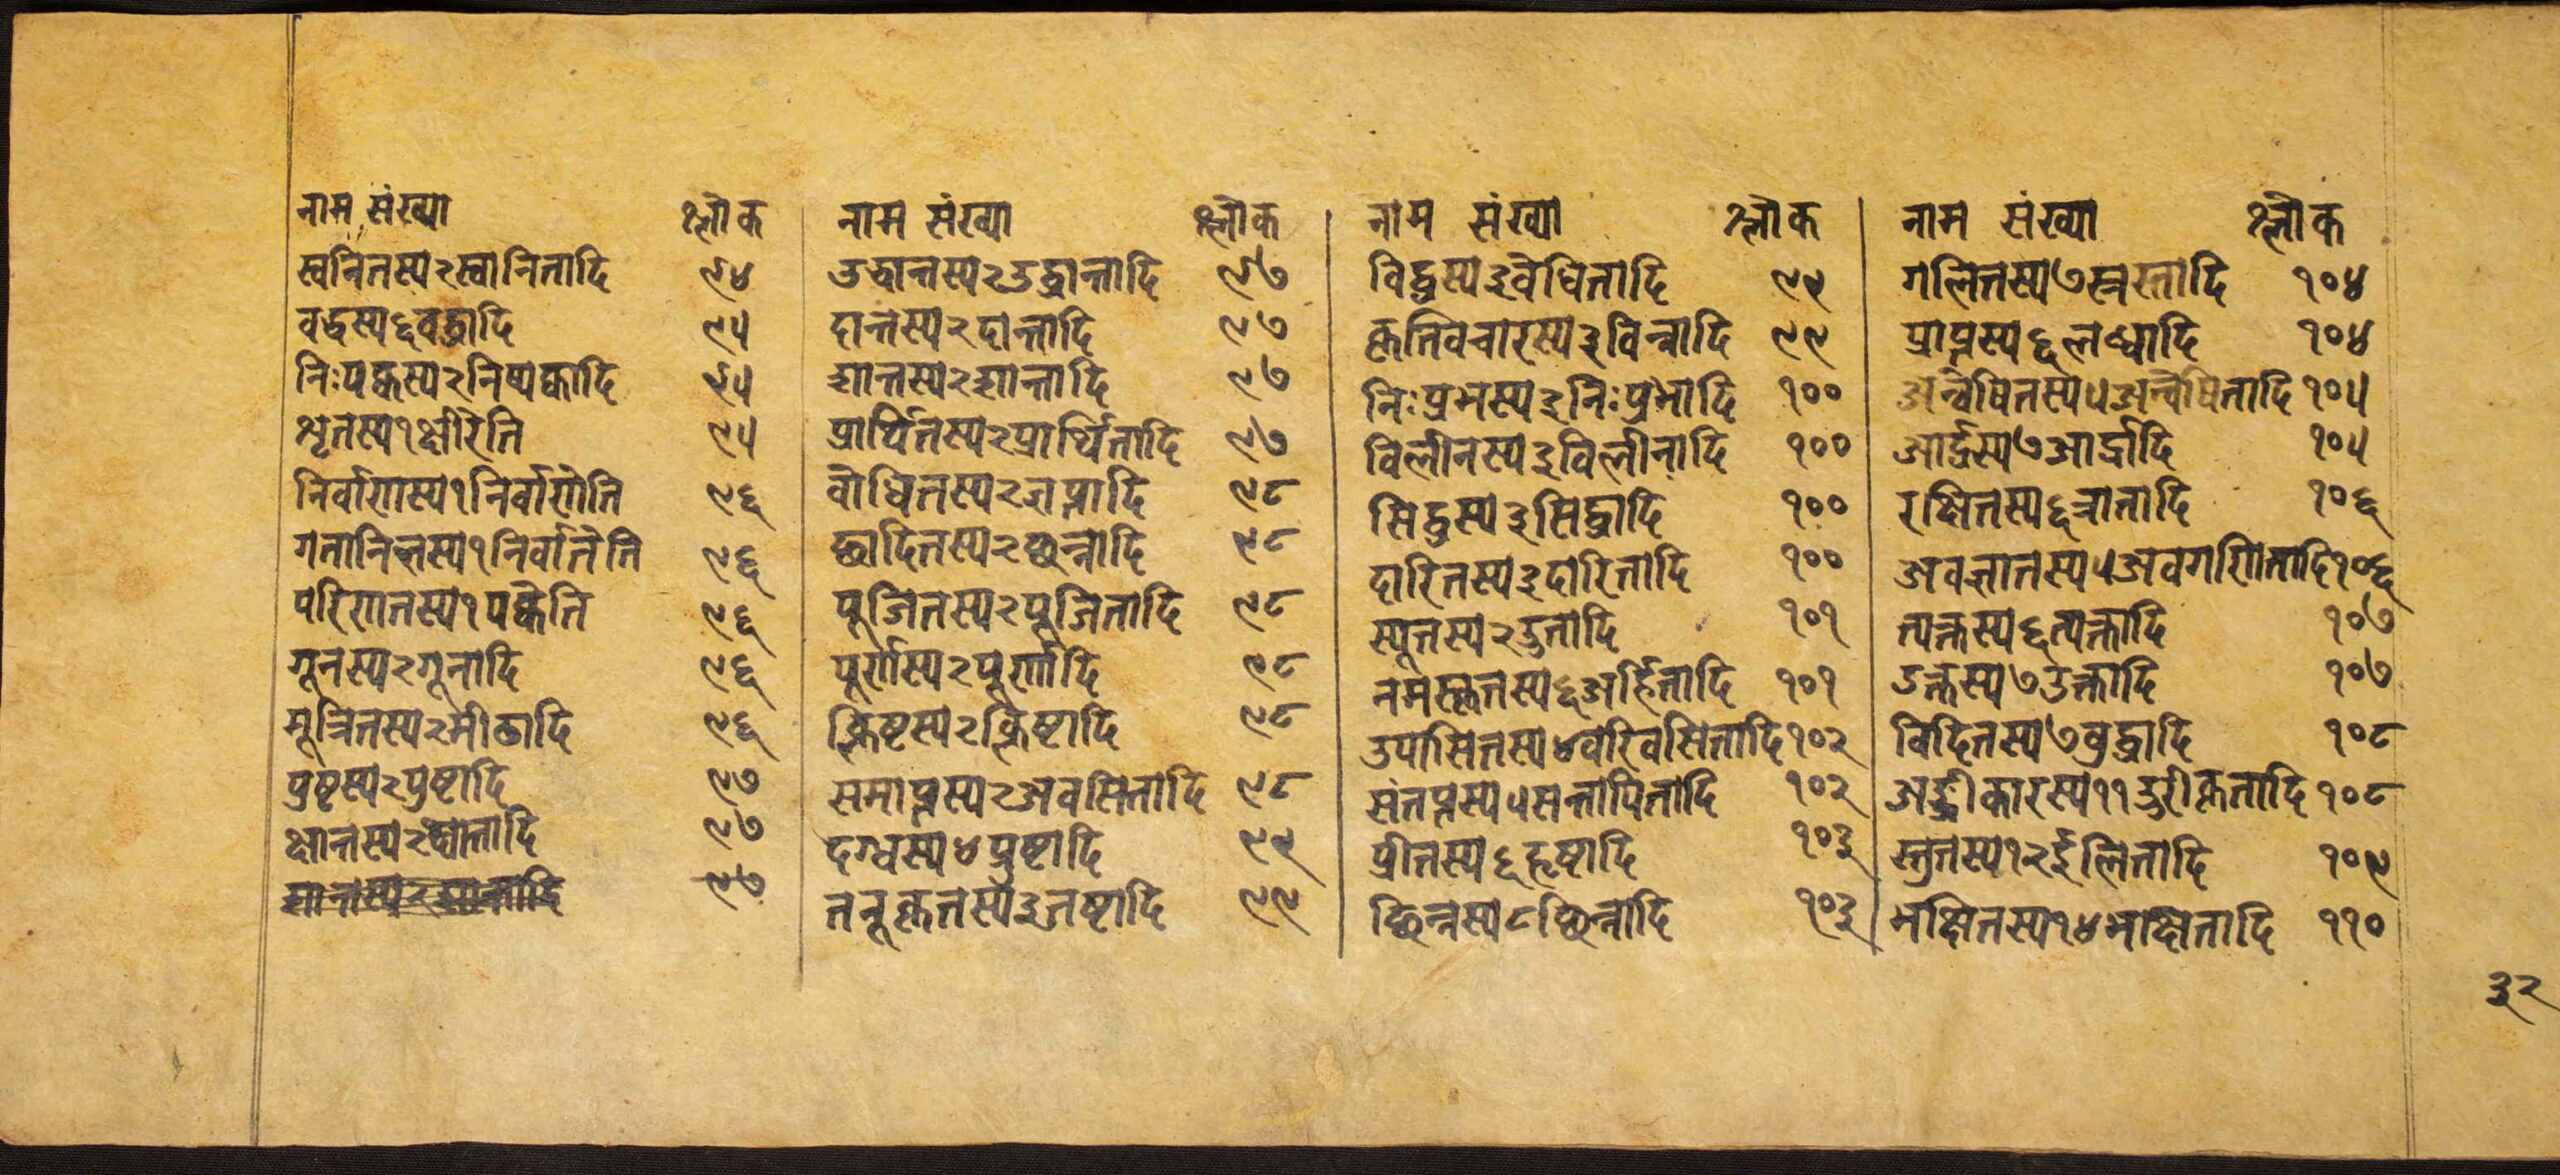 नाम संख्या श्लोक
स्वनितस्य२स्वानितादि ९४
वद्धस्य६वद्धादि ९५
निःपक्वस्य२निष्पक्वादि ९५
शृतस्य१क्षीरेति ९५
निर्वाणस्य१निर्वाणेति ९६
गतानिलस्य१निर्वातेति ९६
परिणतस्य१पक्वेति ९६
गूनस्य२गूनादि ९६
मूत्रितस्य२मीढादि ९६
पुष्टस्य२पुष्टादि ९७
क्षान्तस्य२ ९७
९७
नाम संख्या श्लोक
उद्वान्तस्य२उद्वान्तादि ९७
दान्तस्य२दान्तादि ९७
शान्तस्य२शान्तादि ९७
प्रार्थितस्य२प्रार्थितादि ९७
वोधितस्य२ज्ञप्तादि ९८
छादितस्य२छन्नादि ९८
पूजितस्य२पूजितादि ९८
पूर्णस्य२पूर्णादि ९८
क्लिष्टस्य२क्लिष्टादि ९८
समाप्तस्य२अवसितादि ९८
दग्धस्य४प्रुष्टादि ९९
तनूकृतस्य३तष्टादि ९९
नाम संख्या श्लोक
विद्धस्य३वेधितादि ९९
कृतविचारस्य३विन्नादि ९९
निःप्रभस्य३निःप्रभादि १००
विलीनस्य३विलीनादि १००
सिद्धस्य३सिद्धादि १००
दारितस्य३दारितादि १००
स्यूतस्य२उतादि १०१
नमस्कृतस्य६अर्हितादि १०१
उपासितस्य४वरिवसितादि १०२
संतप्तस्य५सन्तापितादि १०२
प्रीतस्य६हृष्टादि १०३
छिन्नस्य८छिन्नादि १०३
नाम संख्या श्लोक
गलितस्य७स्रस्तादि १०४
प्राप्तस्य६लब्धादि १०४
अन्वेषितस्य५अन्वेषितादि १०५
आर्द्रस्य७आर्द्रादि १०५
रक्षितस्य६त्रातादि १०६
अवज्ञातस्य५अवगणितादि १०६
त्यक्तस्य६त्यक्तादि १०७
उक्तस्य७उक्तादि १०७
विदितस्य७बुद्धादि १०८
अङ्गीकारस्य११उरीकृतादि १०८
स्तुतस्य१२ईलितादि १०९
भक्षितस्य१४भक्षितादि ११०
३२